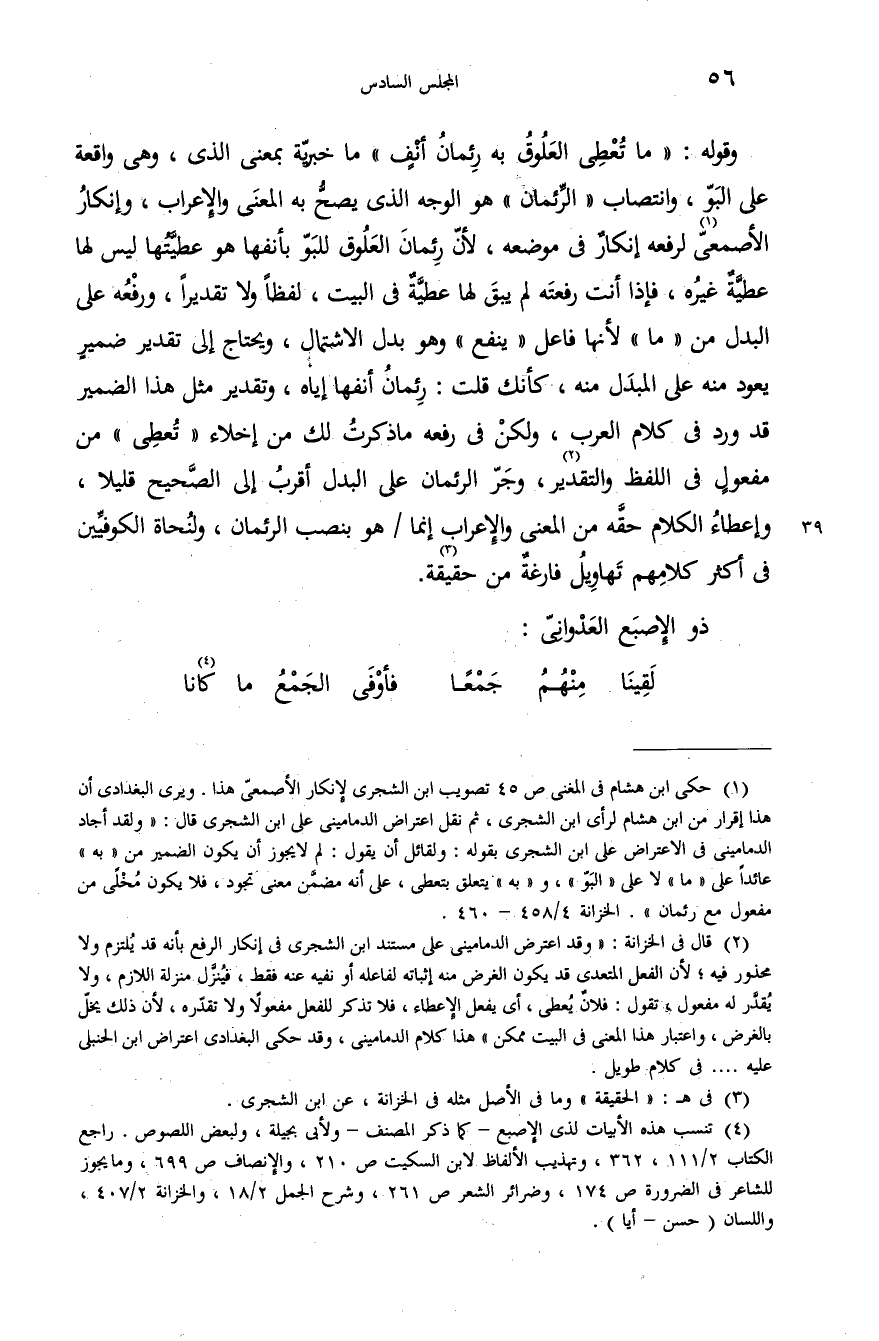 ٥٦
المجلس السادس
وقوله : « ما تُعْطِى العَلُوقُ به رِئمانُ أنْفٍ » ما خبريّة بمعنى الذى ، وهى واقعة
على البَوّ ، وانتصاب « الرِّئمان » هو الوجه الذى يصحُّ به المعنَى والإعراب ، وإنكارُ
الأصمعىّ(١) لرفعه إنكارٌ فى موضعه ، لأنّ رِئمانَ العَلُوق للبَوّ بأنفها هو عطيَّتُها ليس لها
عطيَّةٌ غيرُه ، فإذا أنت رفعتَه لم يبقَ لها عطيَّةٌ فى البيت ، لفظاً ولا تقديراً ، ورفْعُه على
البدل من « ما » لأنها فاعل « ينفع » وهو بدل الاشتمال ، ويحتاج إلى تقدير ضميرٍ
يعود منه على المبدَل منه ، كأنك قلت : رِئمانُ أنفها إياه ، وتقدير مثل هذا الضمير
قد ورد فى كلام العرب ، ولكنْ فى رفعه ماذكرتُ لك من إخلاء « تُعطِى » من
مفعولٍ فى اللفظ والتقدير(٢)، وجَرّ الرئمان على البدل أقربُ إلى الصَّحيح قليلا ،
وإعطاءُ الكلام حقَّه من المعنى والإعراب إنما / هو بنصب الرئمان ، ولنُحاة الكوفيِّين ٣٩
فى أكثر كلامِهم تَهاوِيلُ فارغةٌ من حقيقة(٣).
ذو الإصبَع العَدْوانِىّ :
لَقِينَا مِنْهُمُ جَمْعًا فأوْفَى الجَمْعُ ما كانا(٤)
(١) حكى ابن هشام فى المغنى ص ٤٥ تصويب ابن الشجرى لإنكار الأصمعىّ هذا . ويرى البغدادى أن
هذا إقرار من ابن هشام لرأى ابن الشجرى ، ثم نقل اعتراض الدمامينى على ابن الشجرى قال : « ولقد أجاد
الدمامينى فى الاعتراض على ابن الشجرى بقوله : ولقائل أن يقول : لم لايجوز أن يكون الضمير من « به »
عائداً على « ما » لا على « البَوّ » ، و « به » يتعلق بتعطى ، على أنه مضمَّن معنى تجود ، فلا يكون مُخْلًى من
مفعول مع رئمان » . الخزانة ٤٥٨/٤ – ٤٦٠ .
(٢) قال فى الخزانة : « وقد اعترض الدمامينى على مستند ابن الشجرى فى إنكار الرفع بأنه قد يُلتزم ولا
محذور فيه ؛ لأن الفعل المتعدى قد يكون الغرض منه إثباته لفاعله أو نفيه عنه فقط ، فيُنزَّل منزلة اللازم ، ولا
يُقدَّر له مفعول ، تقول : فلانٌ يُعطى ، أى يفعل الإعطاء ، فلا تذكر للفعل مفعولًا ولا تقدّره ، لأن ذلك يخلّ
بالغرض ، واعتبار هذا المعنى فى البيت ممكن » هذا كلام الدمامينى ، وقد حكى البغدادى اعتراض ابن الحنبلى
عليه .... فى كلام طويل .
(٣) فى هـ : « الحقيقة » وما فى الأصل مثله فى الخزانة ، عن ابن الشجرى .
(٤) تنسب هذه الأبيات لذى الإصبع – كما ذكر المصنف – ولأبى بجيلة ، ولبعض اللصوص . راجع
الكتاب ١١١/٢ ، ٣٦٢ ، وتهذيب الألفاظ لابن السكيت ص ٢١٠ ، والإنصاف ص ٦٩٩ ، ومايجوز
للشاعر فى الضرورة ص ١٧٤ ، وضرائر الشعر ص ٢٦١ ، وشرح الجمل ١٨/٢ ، والخزانة ٤٠٧/٢ ،
واللسان ( حسن – أيا ) .